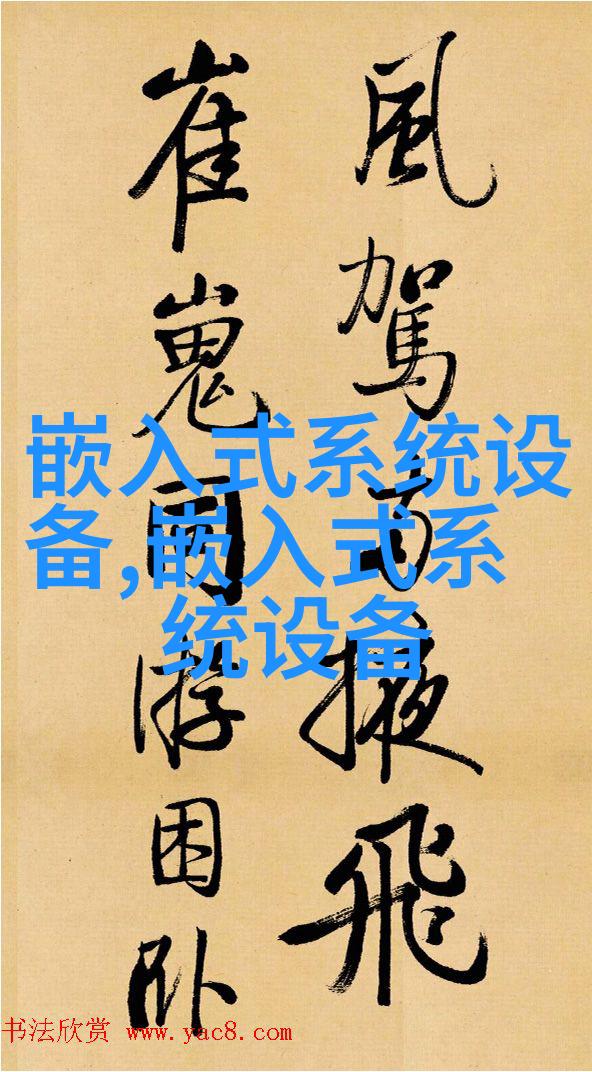 風駕掖飛
崔嵬游困卧
嵌入式系统设
备,嵌入式系
统设备
书法欣赏 www.yac8.com